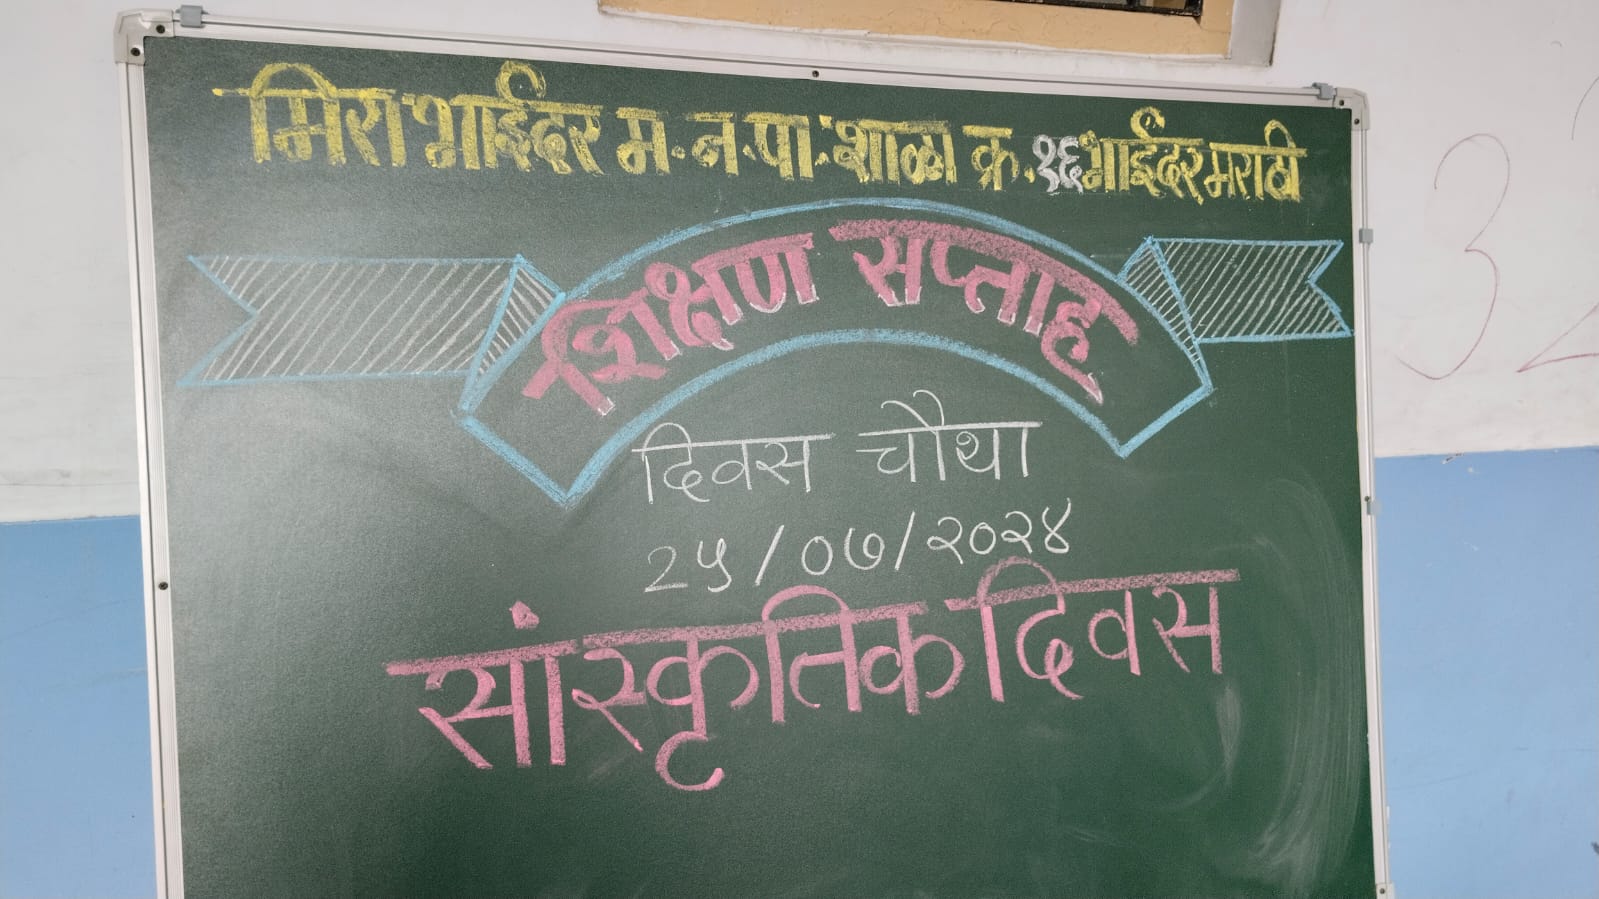 मिरा भाईंदर म.न.पा.शाळा क्र.१६ भाईंदर मराठी
शिक्षण सप्ताह
दिवस चौथा
२५/०७/२०२४
सांस्कृतिक दिवस
32